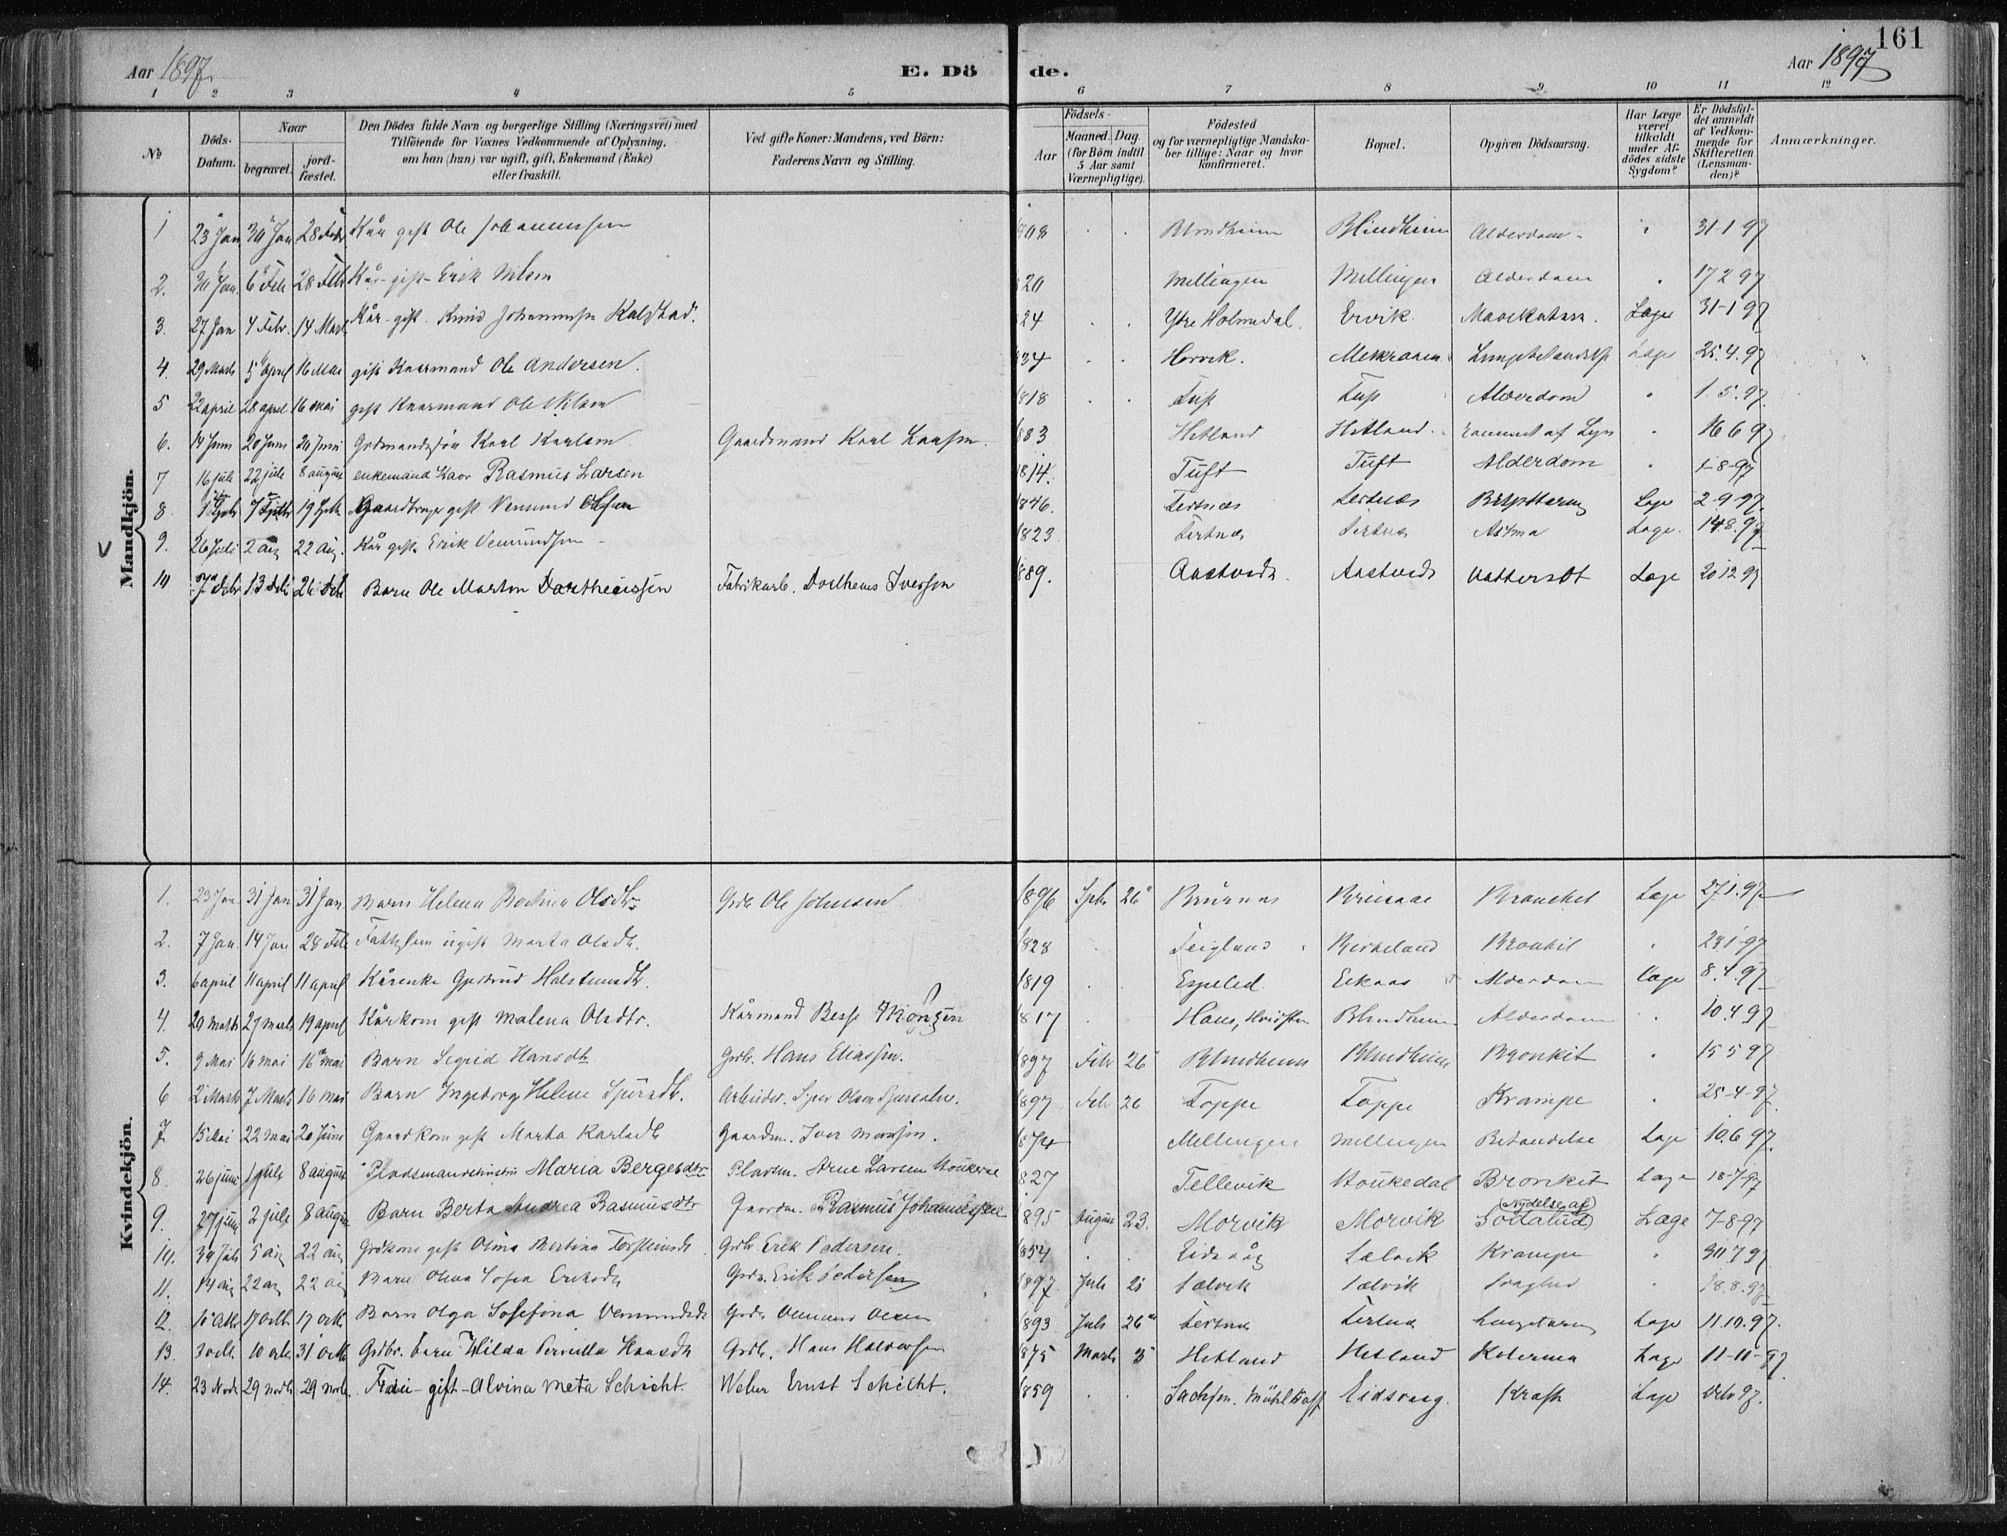 161
Aar 1897
E. Dö de.
Aar 1897
1 2 3 4 5 6 7 8 9 10 11 12
No
Döds-Datum.
Naar
begravet.
jordfæstet.
Den Dödes fulde Navn og borgerlige Stilling (Næringsvei) med
Tilföiende for Voxnes Vedkommende af Oplysning,
om han (hun) var ugift, gift, Enkemand (Enke)
eller fraskilt.
Ved gifte Koner: Mandens, ved Börn:
Faderens Navn og Stilling.
Födsels-
Aar
Maaned. Dag.
(for Börn indtil
5 Aar samt
Værnepligtige).
Födested
og for værnepligtige Mandska-
ber tillige: Naar og hvor
konfirmeret.
Bopæl.
Opgiven Dödsaarsag.
Har Læge
været
tilkaldt
under Af-
dödes sidste
Sygdom?
Er Dödsfal-
det anmeldt
af Vedkom-
mende for
Skifteretten
(Lensman-
den)?
Anmærkninger.
Mandkjön.
1 23 Jan 30 Jan 28 Febr Kår gift Ole Johannessen Blindheim Blindheim Alderdom 31-1 97
2. 30 Jan. 6 Feb 28 Feb Kår-gift-Erik Nilsen 20 Mellingen Mellingen Alderdom 17 2 97
3. 27 Jan 4 Febr. 14 Mart Kår-gift. Knud Johannessen Kalstad. 24 Ytre Holmedal. Ervik Læge 31-1 97
4. 29 Marts 5 april 16 Mai gift Kaarmand Ole Andersen. 34 Horvik. Læge 25.4.97
5 22 april 28 april 16 mai gift Kaarmand Ole Nilsen 1818 Tuft Tuft Alderdom 1.5.97.
6. 14 Juni 20 Juni 20 Juni Grdmandssøn Karl Karlsen Gaardmand Karl Larsen. 883 Hetland Hetland. 16 6 97
7 16 juli 22 juli 8 august enkemand Kaar Rasmus Larsen 1814. Tuft Tuft Alderdom 1-8-97
8. 1 Septr 7 Septbr 19 Septb Gaardbruger gift Vemund Olsen 1846. Tertnæs Tertnæs Læge 2-9-97.
9. 26 Juli 2 aug 22 aug. Kår gift. Erik Vemundsen 1823 Tertnæs Tertnæs Astma Læge. 14.8.97
10 7 Debr 13 Deb 26 Deb Barn Ole Martin Dortheussen Fabrikarb. Dortheus Iversen 889. Aastvedt. Aastvedt Vattersot Læge 20 12 97
Kvindekjön.
1. 23 Jan. 31 Jan 31 Jan. Barn Helena Bertina Olsdtr Grdb Ole Johnsen. 1896 Septr 26 Bronchit Læge 27.1.97
2. 7 Jan. 14 Jan 28 Feb Fattiglem ugift Marta Olsdtr. 1828 Teigland Birkeland Bronkit 28 1-97
3. 6 april 11 april 11 april Kårenke Gjertrud Halstensdtr. 1819 Espeled Eikaas Alderdom Læge 8.4.97
4. 20 marts 27 marts 19 april Kårkone gift Malena Olsdtr. Kårmand 1817 Haus, Blindheim Alderdom 10.4 97
5. 9 Mai 16 mai 16 mai Barn Sigrid Hansdtr Grdb. Hans Eliassen. 1897 Febr 26 Blindheim Blindheim Bronkit 15 5 97
6 2 Marts 7 Marts 16 mai Barn Ingeborg Helene Sjursdtr. Arbeider. Sjur Olsen 1897 Feb 26 Toppe Toppe Krampe 25-4-97.
7. 15 Mai 22 mai 20 Juni Gaardkone gift Marta Karlsdtr Gaardm. Iver Monsen. 874 Mellingen Mellingen Betændelse Læge 10.6 97.
8. 26 juni 1 juli 8 august Pladsmandshustru Maria Bergesdtr Pladsm. Arne Larsen Houkedal 827 Tellevik Houkedal Bronkit Læge 18-7-97
9. 27 juni 2 juli 8 august Barn Berta Andrea Rasmusdtr Gaardm. Rasmus Johannessen 1895 August 23. Morvik Morvik Nydelse af Sodalud Læge 7-8-97
10. 30 Juli 5 aug 22 aug Grdkone gift Olina Bertina Torsteinsdtr Grdb Erik Pedersen. 854 Eidsvåg Sælvik Krampe 30 7 97
11. 14 aug 22 aug 22 aug Barn Olina Sofia Eriksdtr Grdb. Erik Pedersen 1897. Juli Sælvik Sælvik Svaghed 18.8.97
12. 15 Oktb 17 octb 17 octb Barn Olga Josefina Vemundsdtr Grdb Vemund Olsen 1893 Juli 26 Tertnæs Tertnæs Læge 11.10.97.
13. 3 octb. 10 octb 31 octb Grdbr. barn Hilda Pernilla Hansdtr Grdb. Hans Halvorsen 875 Marts 3 Hetland Hetland Læge 11-11-97
14. 23 Novb. 29 Novb 29 Novb. Frue-gift-Alvina Meta Schicht. Wæver Ernst Schicht. 1859 Sachsen. Eidsvaag. Kræft Læge Debr 97.